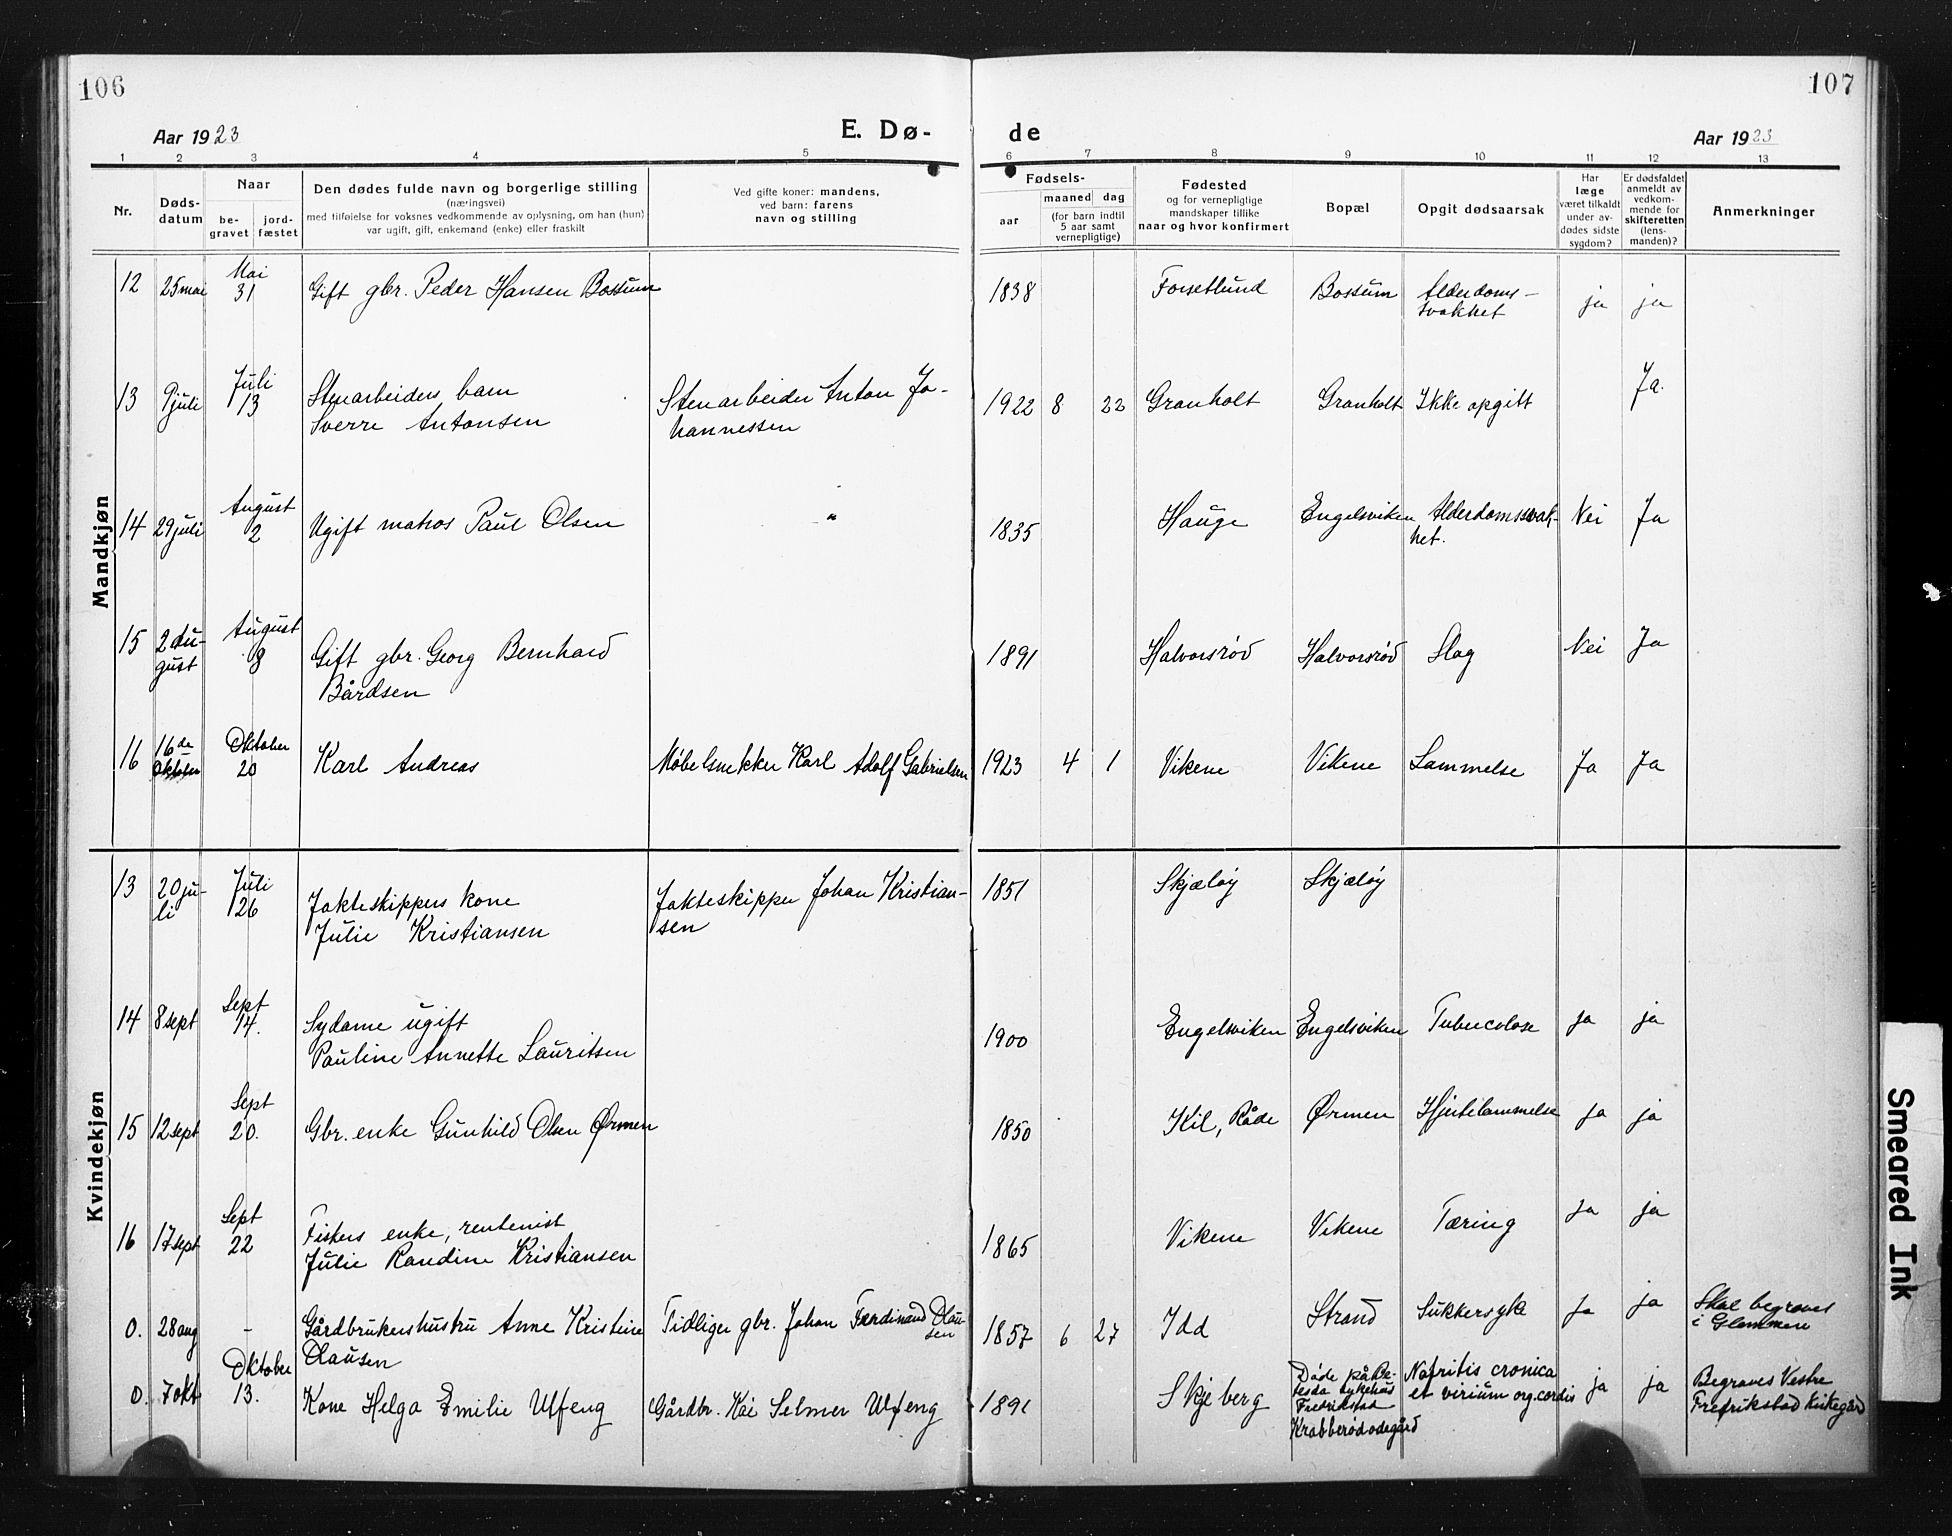 106
107
Aar 1923
E. Dø-
de
Aar 1923
1 2 3 4 5 6 7 8 9 10 11 12 13
Nr.
Døds-
datum
Naar
be-
gravet
jord-
fæstet
Den dødes fulde navn og borgerlige stilling
(næringsvei)
med tilføielse for voksnes vedkommende av oplysning, om han (hun)
var ugift, gift, enkemand (enke) eller fraskilt
Ved gifte koner: mandens,
ved barn: farens
navn og stilling
Fødsels-
aar
maaned dag
(for barn indtil
5 aar samt
vernepligtige)
Fødested
og for vernepligtige
mandskaper tillike
naar og hvor konfirmert
Bopæl
Opgit dødsaarsak
Har
læge
været tilkaldt
under av-
dødes sidste
sygdom?
Er dødsfaldet
anmeldt av
vedkom-
mende for
skifteretten
(lens-
manden)?
Anmerkninger
Mandkjøn
12 25 mai Mai
31 Gift gbr. Peder Hansen Bossum 1838 Forsetlund Bossum Alderdoms-
svakhet ja ja
13 9 juli Juli
13 Stenarbeiders barn
Sverre Antonsen Stenarbeider Anton Jo-
hannessen 1922 8 22 Granholt Granholt Ikke opgitt Ja.
14 29 juli August
2 Ugift matros Paul Olsen " 1835 Hauge Engelsviken Alderdomssvak-
het. Nei Ja
15 2 Au-
gust August
8 Gift gbr. Georg Bernhard
Bårdsen 1891 Halvorsrød Halvorsrød Slag Nei Ja
16 16de
Oktober Oktober
20 Karl Andreas Møbelsnekker Karl Adolf Gabrielsen 1923 4 1 Vikene Vikene Lammelse Ja Ja
Kvindekjøn
13 20 ju-
li Juli
26 Jakteskippers kone
Julie Kristiansen Jakteskipper Johan Kristian-
sen 1851 Skjæløy Skjæløy
14 8 sept Sept
14. Sydame ugift
Pauline Annette Lauritsen 1900 Engelsviken Engelsviken Tuberculose ja ja
15 12 sept Sept
20. Gbr. enke Gunhild Olsen Ørmen 1850 Kil, Råde Ørmen Hjertelammelse ja ja
16 17 sept Sept
22 Fiskers enke, rentenist
Julie Randine Kristiansen 1865 Vikene Vikene Tæring Ja ja
0. 28 aug - Gårdbrukerhustru Anne Kristine
Olausen Tidliger gbr. Johan Ferdinand Olau-
sen 1857 6 27 Idd Strand Sukkersyke Ja ja Skal begraves
i Glemmen
0. 7 okt Oktober
13. Kone Helga Emilie Ulfeng Gårdbr. Kai Selmer Ulfeng 1891 Skjeberg Døde på Be-
tesda sykehus
Fredrikstad
Krabberødødegård Nafritis cronica
et virium org. cordis ja ja Begraves Vestre
Fredrikstad Kirkegård
Smeared Ink